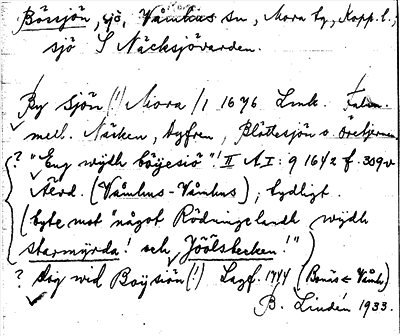 Bössjön, sjö, Våmhus sn, Mora tg, Kopp. l.;
sjö S Näcksjövarden.
By sjön (!) Mora /1 1676 Lmk. Falun.
mell. Näcken, Axfren, Blottesjön o. Öretjärnen
? "Eng wydh böyesiö"! II A I: 9 1642 f. 309v
Älvd. (Våmhus - Våmhus), tydligt.
(byte mot "något Rödningelandt wydh
starmyrda! och Jöölsbecken!")
? dåg wid Boysiön (!) Lagf. 1744 (Bonäs ← Våmh)
B. Lindén 1933.